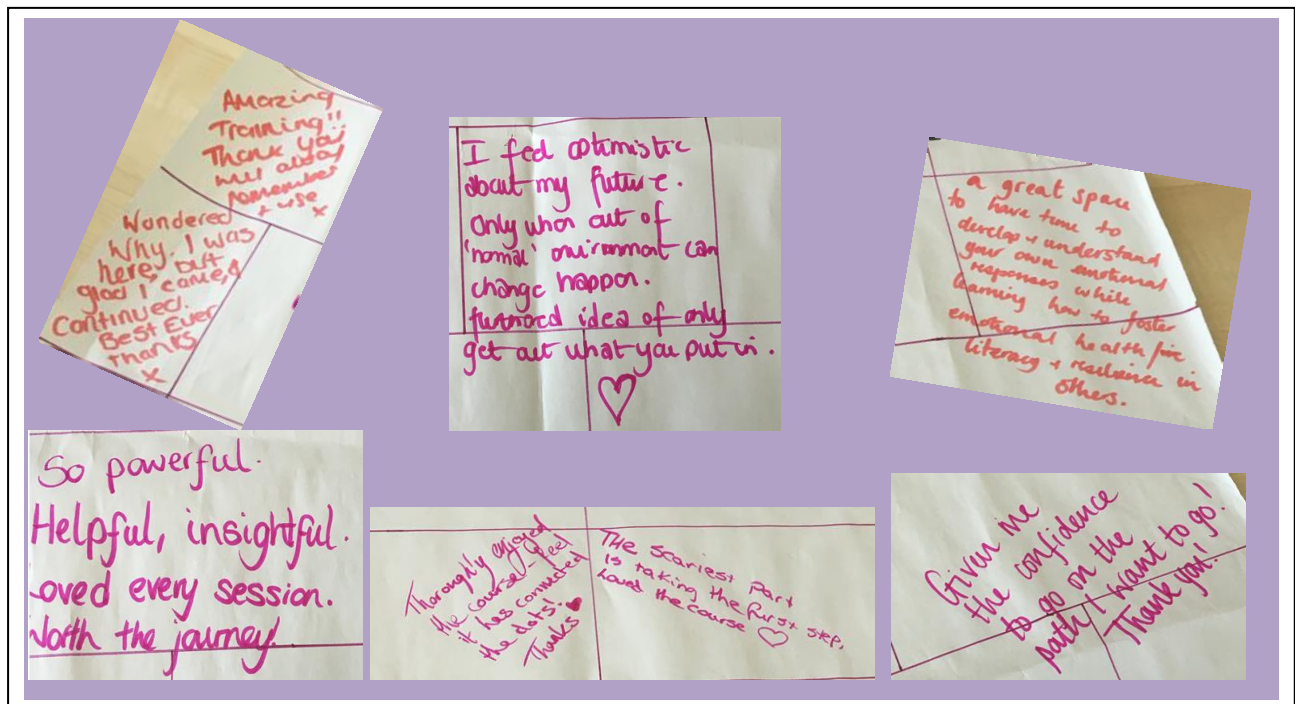 Amazing
Tranning!!
Thank you
will always
remember
+ use x
Wondered
Why. I was
here, but
glad I came,
Continued.
Best Ever
Thanks
x
I feel optimistic
about my future.
Only when out of
'normal' environment can
change happen.
idea of only
get out what you put in.
a great space
to have time to
develop + understand
your own emotional
responses while
learning how to foster
emotional health
literacy + resilience in
others.
So powerful.
Helpful, insightful.
oved every session.
Worth the journey!
Thoroughly enjoyed
the course - feel
it has connected
the dots!
Thanks
The scariest part
is taking the first step,
loved the course
Given me
the confidence
to go on the
path I want to go!
Thank you!